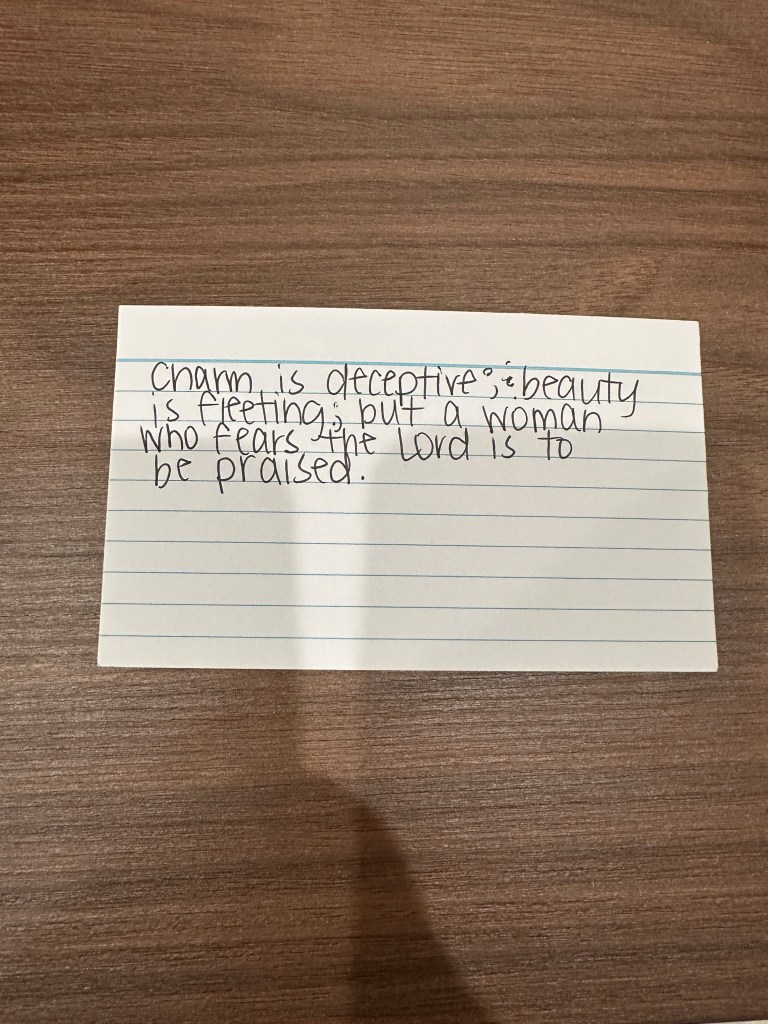 Charm is deceptive, & beauty
is fleeting; but a woman
who fears the Lord is to
be praised.